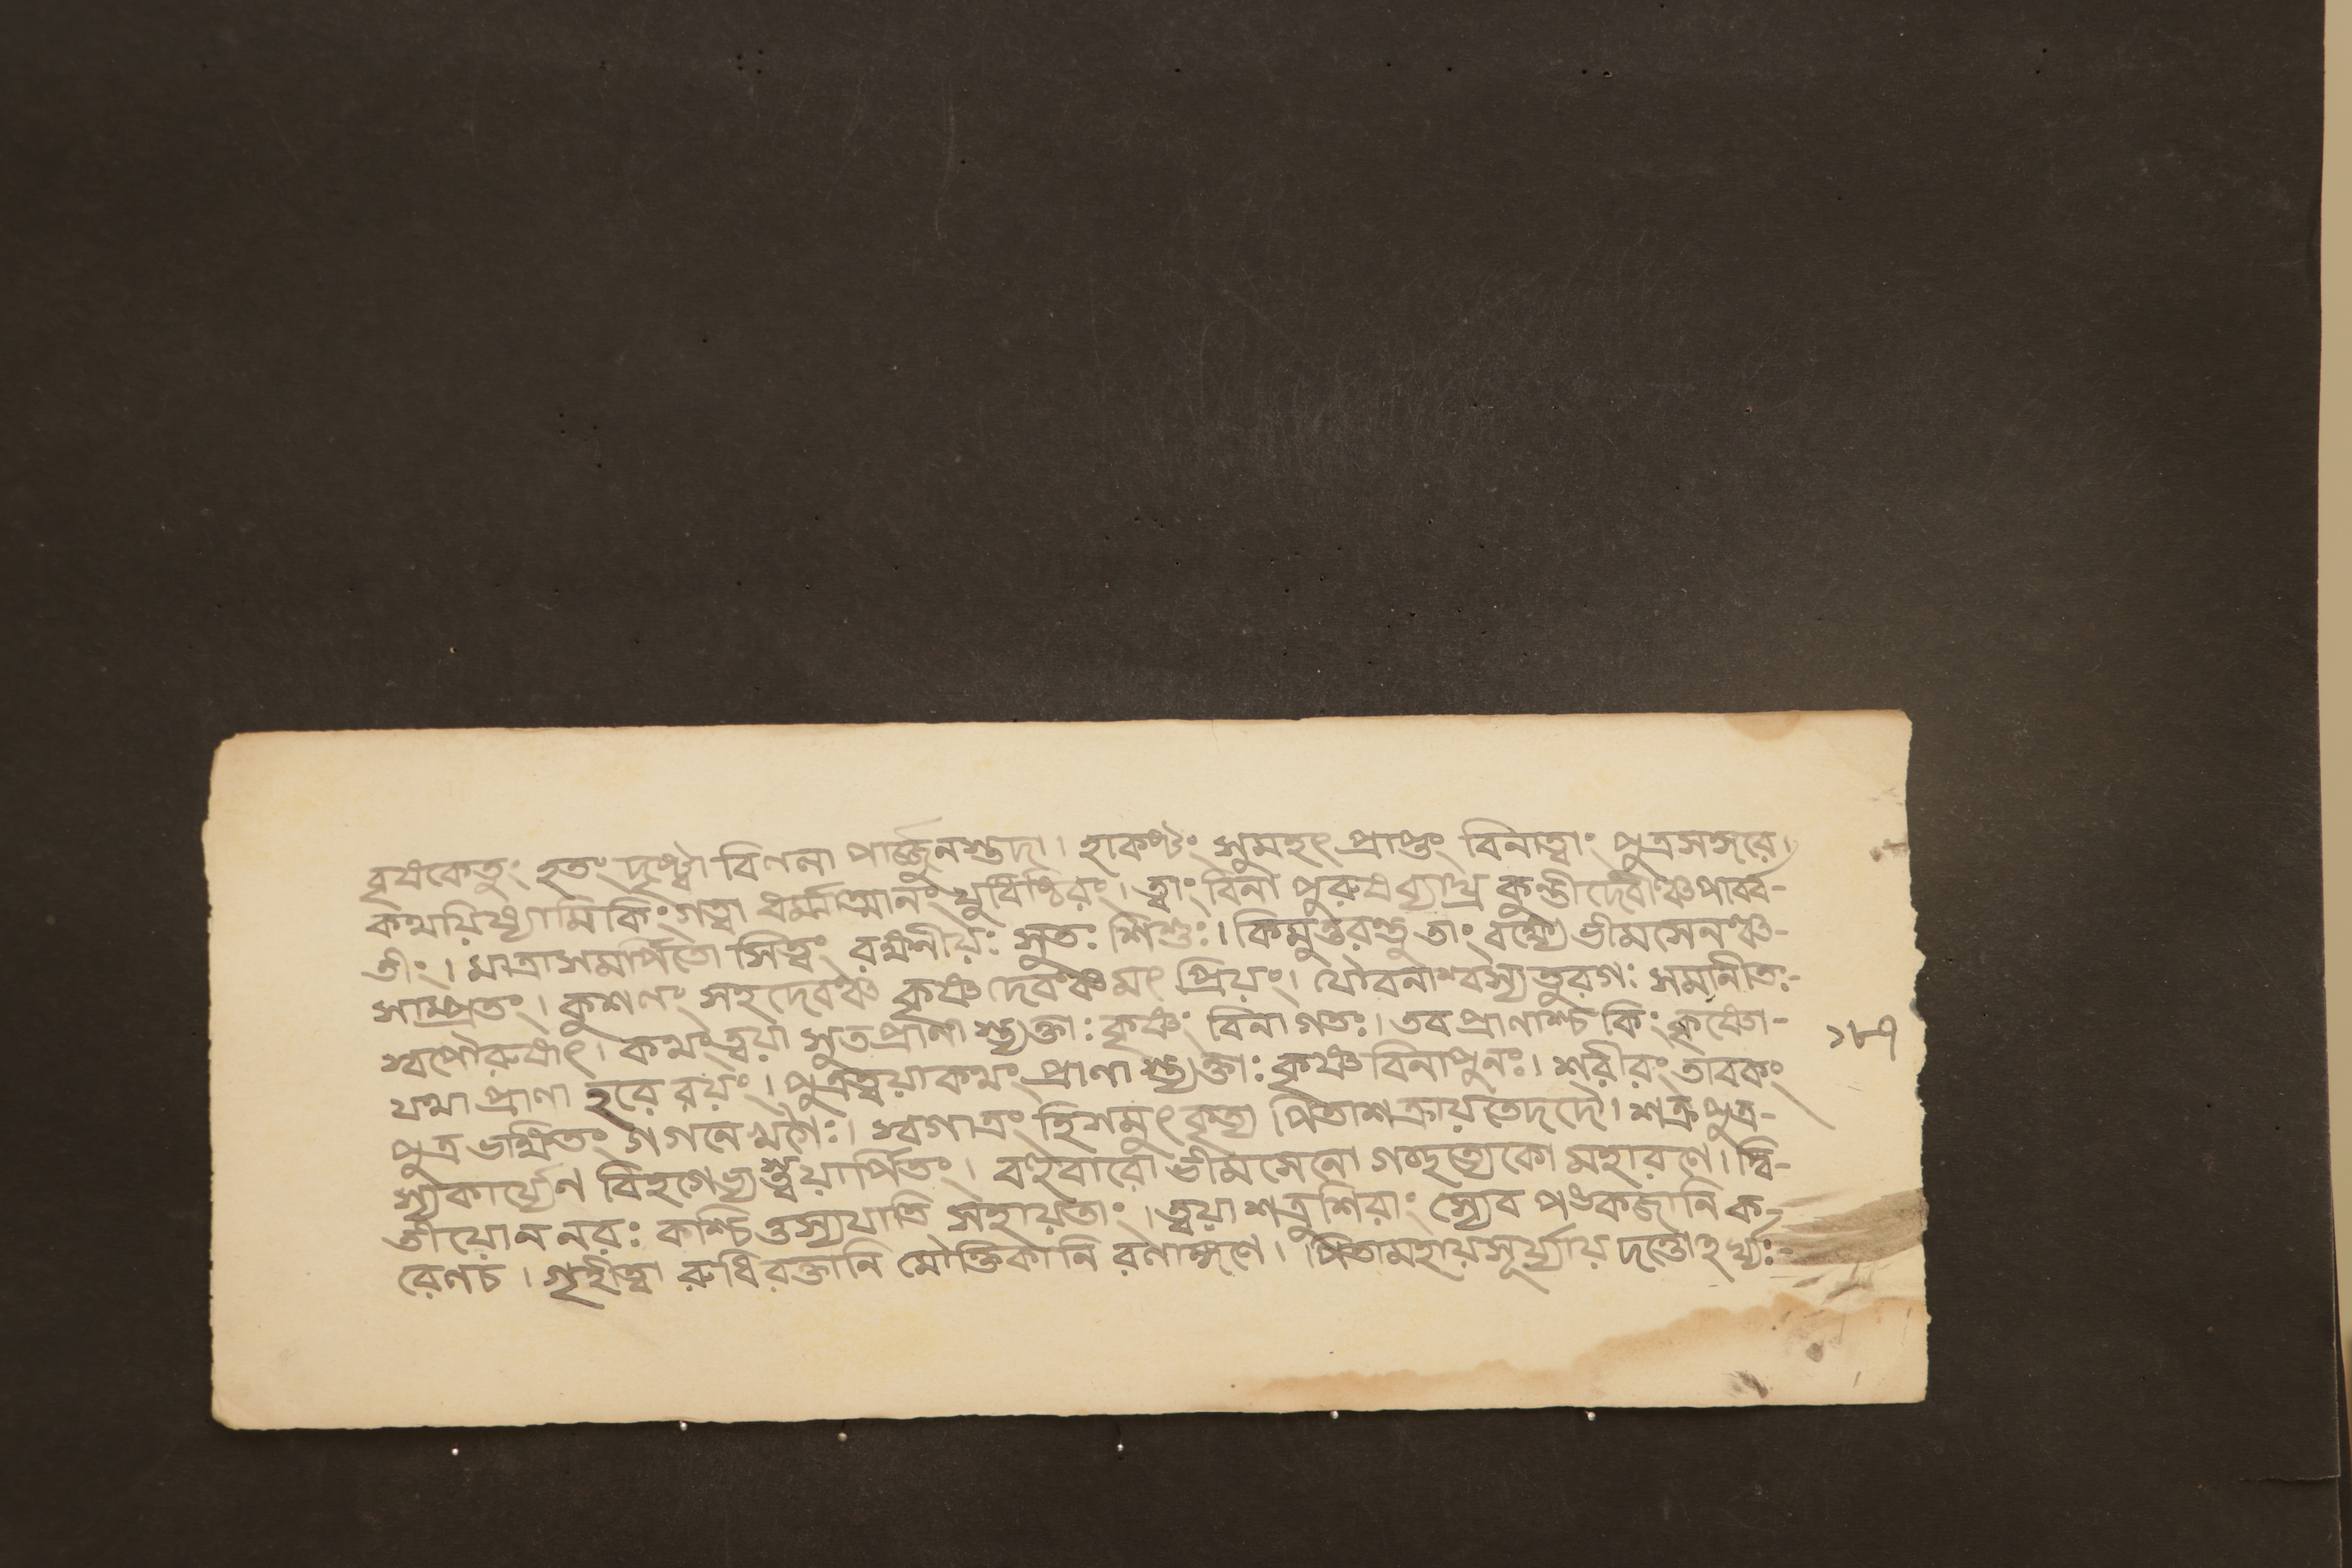 বৃষকেতুং হতং দৃষ্ট্বা বিণনা পার্জ্জুনস্তদা। হাকষ্টং সুমহৎ প্রাপ্তং বিনাত্বাং পুত্রসঙ্গরে।
কথয়িষ্যামি কিং গত্বা ধর্ম্মাত্মানং যুধিষ্ঠিরং। ত্বাং বিনা পুরুষব্যাঘ্র কুন্তীদেবীঞ্চ পার্ব্ব-
তীং। মাত্রাসমর্পিতো সিত্বং রক্ষনীয়ঃ সুতঃ শিশুঃ। কিমুত্তরন্তু তাং বক্ষ্যে ভীমসেনঞ্চ-
সাম্প্রতং। কুশণং সহদেবঞ্চ কৃষ্ণদেবঞ্চ মৎ প্রিয়ং। যৌবনাশ্বস্য তুরগঃ সমানীতঃ-
স্বপৌরুষাৎ। কথং ত্বয়া সুতপ্রাণা স্ত্যক্তাঃ কৃষ্ণং বিনা গতঃ। তব প্রাণাশ্চ কিং কৃষ্ণো-
যথা প্রাণা হরে রয়ং। পুত্রত্বয়াকথং প্রাণা স্ত্যক্তাঃ কৃষ্ণ বিনাপুনঃ। শরীরং তাবকং
পুত্র ভক্ষিতং গগনে খগৈঃ। স্বগাত্রং হিসমুৎকৃত্য পিতাশক্রায়তেদদৌ। শক্রপুত্র-
স্যকার্য্যেণ বিহগেভ্যস্ত্বয়ার্পিতং। বহুবারো ভীমসেনো গচ্ছত্যেকো মহারণে। দ্বি-
তীয়োন নরঃ কশ্চি ত্তস্যযাতি সহায়তাং। ত্বয়া শত্রুশিরাং স্যেব পঙ্কজানি ক-
রেণচ। গৃহীত্বা রুধিরক্তানি মৌক্তিকানি রণাঙ্গণে। পিতামহায়সূর্য্যায় দত্তোঽর্ঘ্যঃ-
১৮৭